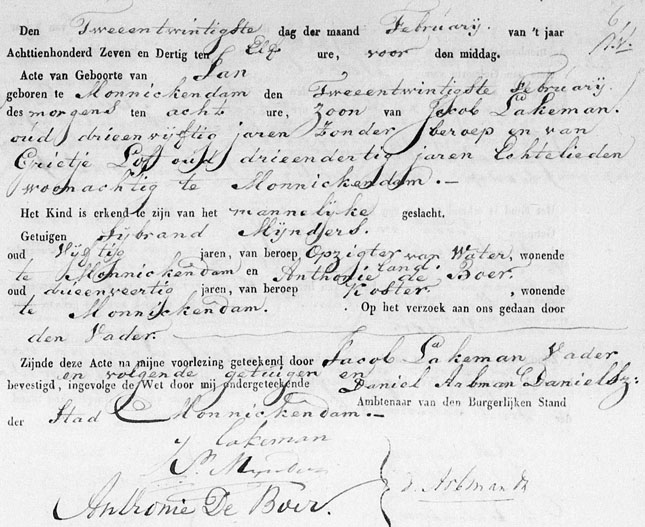 Den Tweeentwintigste dag der maand February. van 't jaar
Achttienhonderd Zeven en Dertig ten Elf ure, voor den middag.
Acte van Geboorte van Jan
geboren te Monnickendam den Tweeentwintigste February.
des morgens ten acht ure, zoon van Jacob Lakeman.
oud drieenvijftig jaren zonder beroep en van
Grietje Lof oud drieendertig jaren Echtelieden
woonachtig te Monnickendam. —
Het Kind is erkend te zijn van het mannelijke geslacht.
Getuigen Sijbrand Mijnders.
oud Vijftig jaren, van beroep Opzigter van Water, wonende
land.
te Monnickendam en Anthonie de Boer.
oud drieenveertig jaren, van beroep Koster. , wonende
te Monnickendam. . Op het verzoek aan ons gedaan door
den Vader.
Zijnde deze Acte na mijne voorlezing geteekend door Jacob Lakeman Vader
en volgende getuigen en
bevestigd, ingevolge de Wet door mij ondergeteekende Daniel Arbman Danielsz:
Ambtenaar van den Burgerlijken Stand
der Stad Monnickendam. —
J Lakeman
S. Mijnders
Anthonie De Boer.